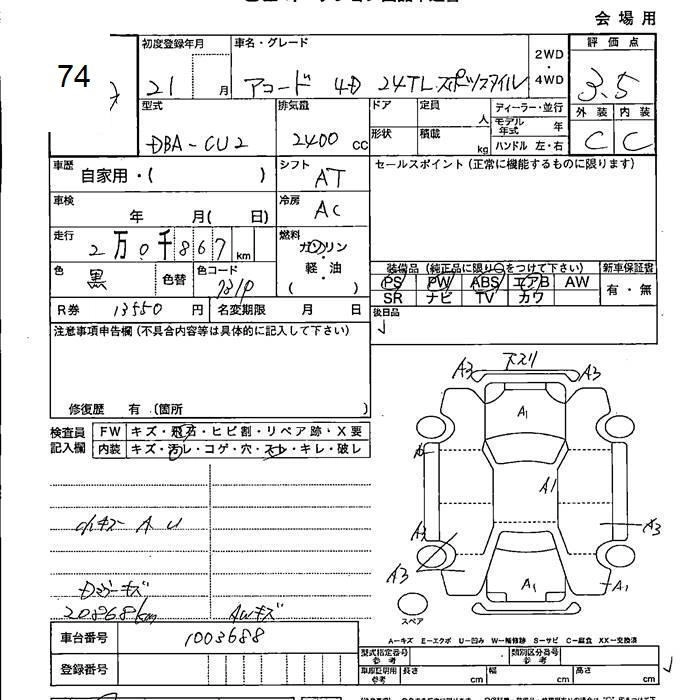 会場用
74
初度登録年月 21 月
車名・グレード アコード 4D 24TL スポーツスタイル
2WD・4WD
評価点 3.5
型式 DBA-CU2
排気量 2400 CC
ドア 定員 人
形状 積載 kg
ディーラー・並行
モデル年式 年
ハンドル 左・右
外装 内装
C C
車歴 自家用・( )
シフト AT
セールスポイント (正常に機能するものに限ります)
車検 年 月( 日)
冷房 AC
走行 2万0千867 km
燃料 ガソリン・軽・油 ( )
色 黒 色替 色コード
装備品 (純正品に限り○をつけて下さい) 新車保証書
PS PW ABS エアB AW 有・無
SR ナビ TV カワ
R券 13550 円 名変期限 月 日
後日品
注意事項申告欄 (不具合内容等は具体的に記入して下さい)
修復歴 有 (箇所 )
検査員記入欄
FW キズ・飛石・ヒビ割・リペア跡・X要
内装 キズ・汚レ・コゲ・穴・スレ・キレ・破レ
A3 ススリ A3
A1
A1
A3 A3
A3 A1 A1
小キズ A U
20868km AWキズ
スペア
A-キズ E-エクボ U-凹み W-補修跡 S-サビ C-腐食 XX-交換済
車台番号 1003688
型式指定番号 参考 類別区分番号 参考
登録番号
車庫証明用 参考 長さ cm 幅 cm 高さ cm